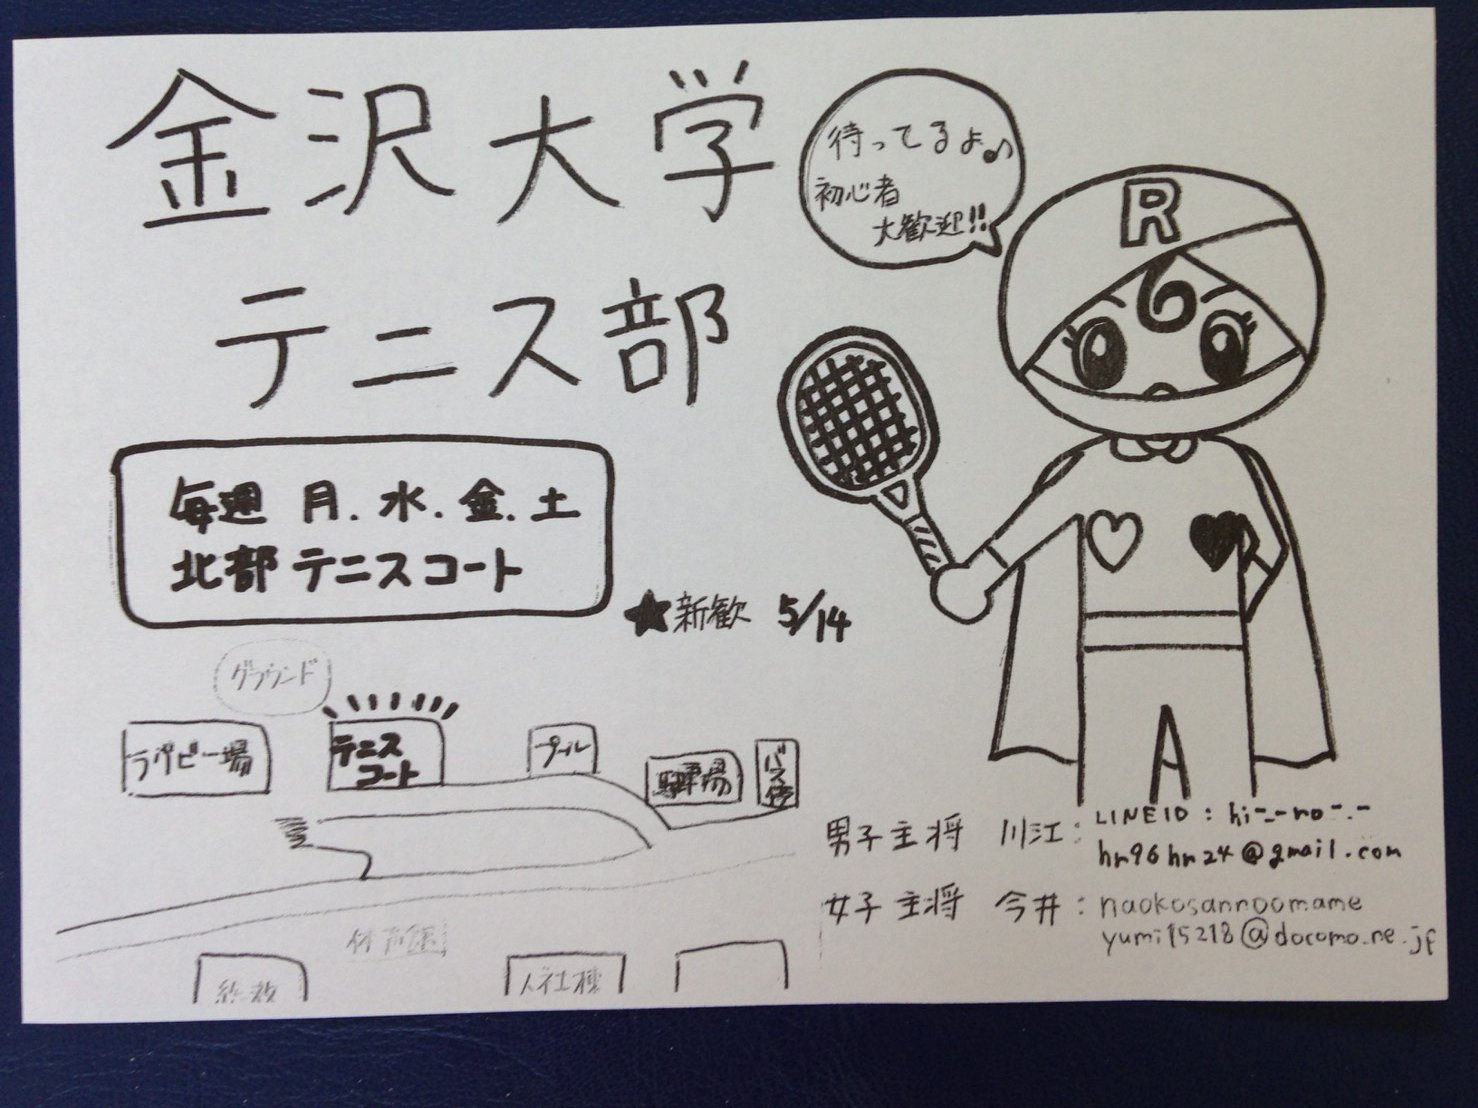 金沢大学
テニス部
待ってるよ♪
初心者
大歓迎!!
R
毎週 月.水.金.土
北部テニスコート
★新歓 5/14
グラウンド
ラグビー場
テニス
コート
プール
駐車場
バス停
体育館
総教
人社棟
男子主将 川江:LINEID:hi-_-no-.-
hm96hm24@gmail.com
女子主将 今井:naokosannoomame
yumi15218@docomo.ne.jp